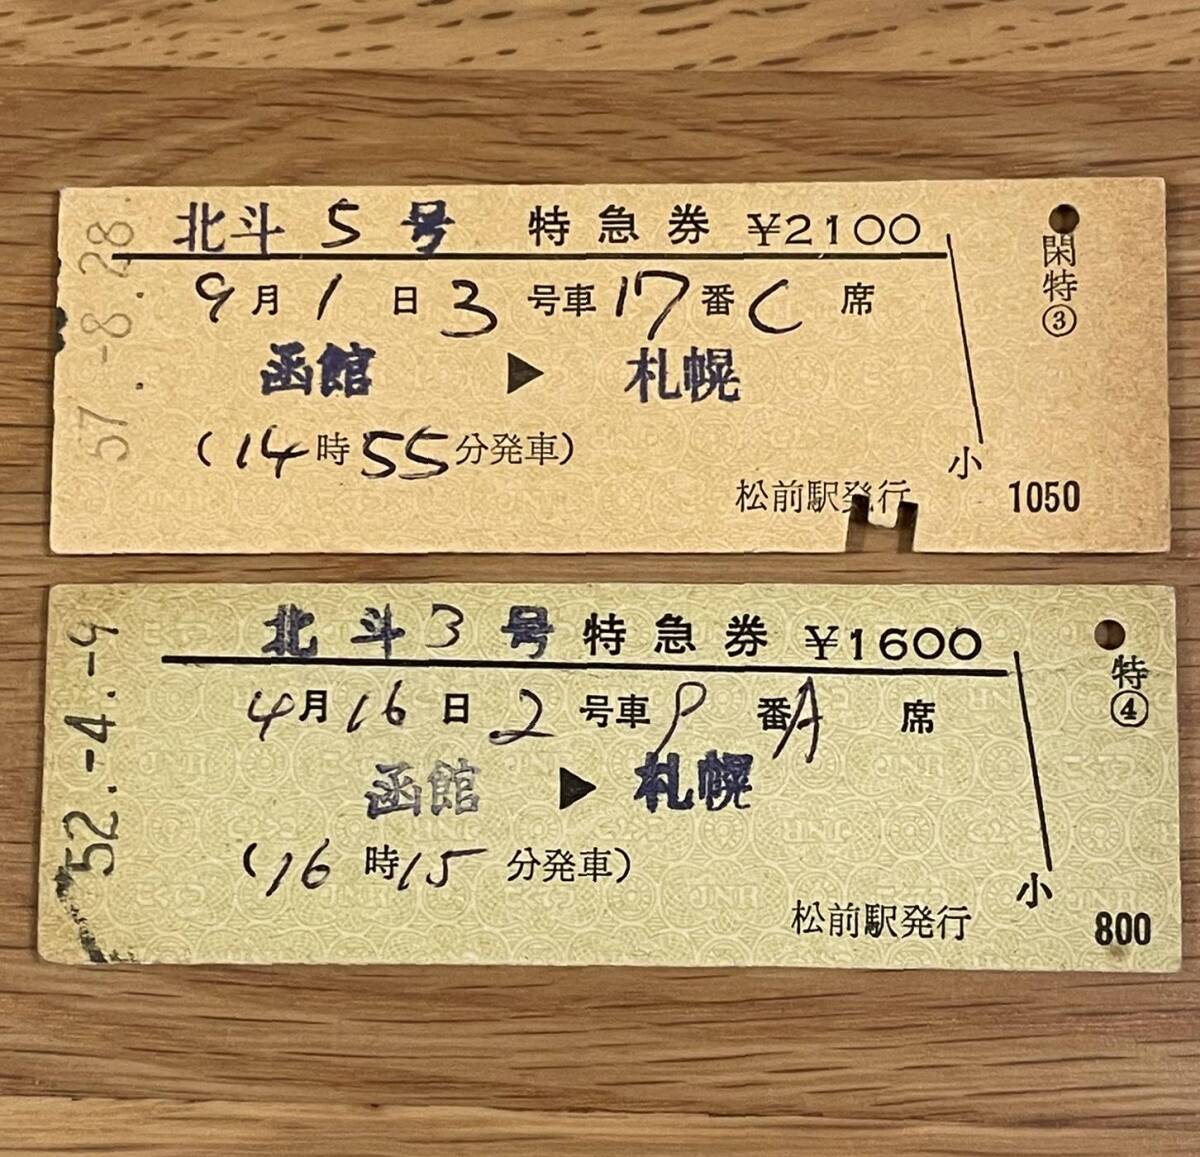 57.-8.28.
北斗 5 号 特急券 ¥2100
9月1日3号車17番C席
函館 ▶ 札幌
(14時55分発車)
松前駅発行
小
1050
閑特③
52.-4.-9
北斗3号特急券 ¥1600
4月16日2号車9番A席
函館 ▶ 札幌
(16時15分発車)
松前駅発行
小
800
特④